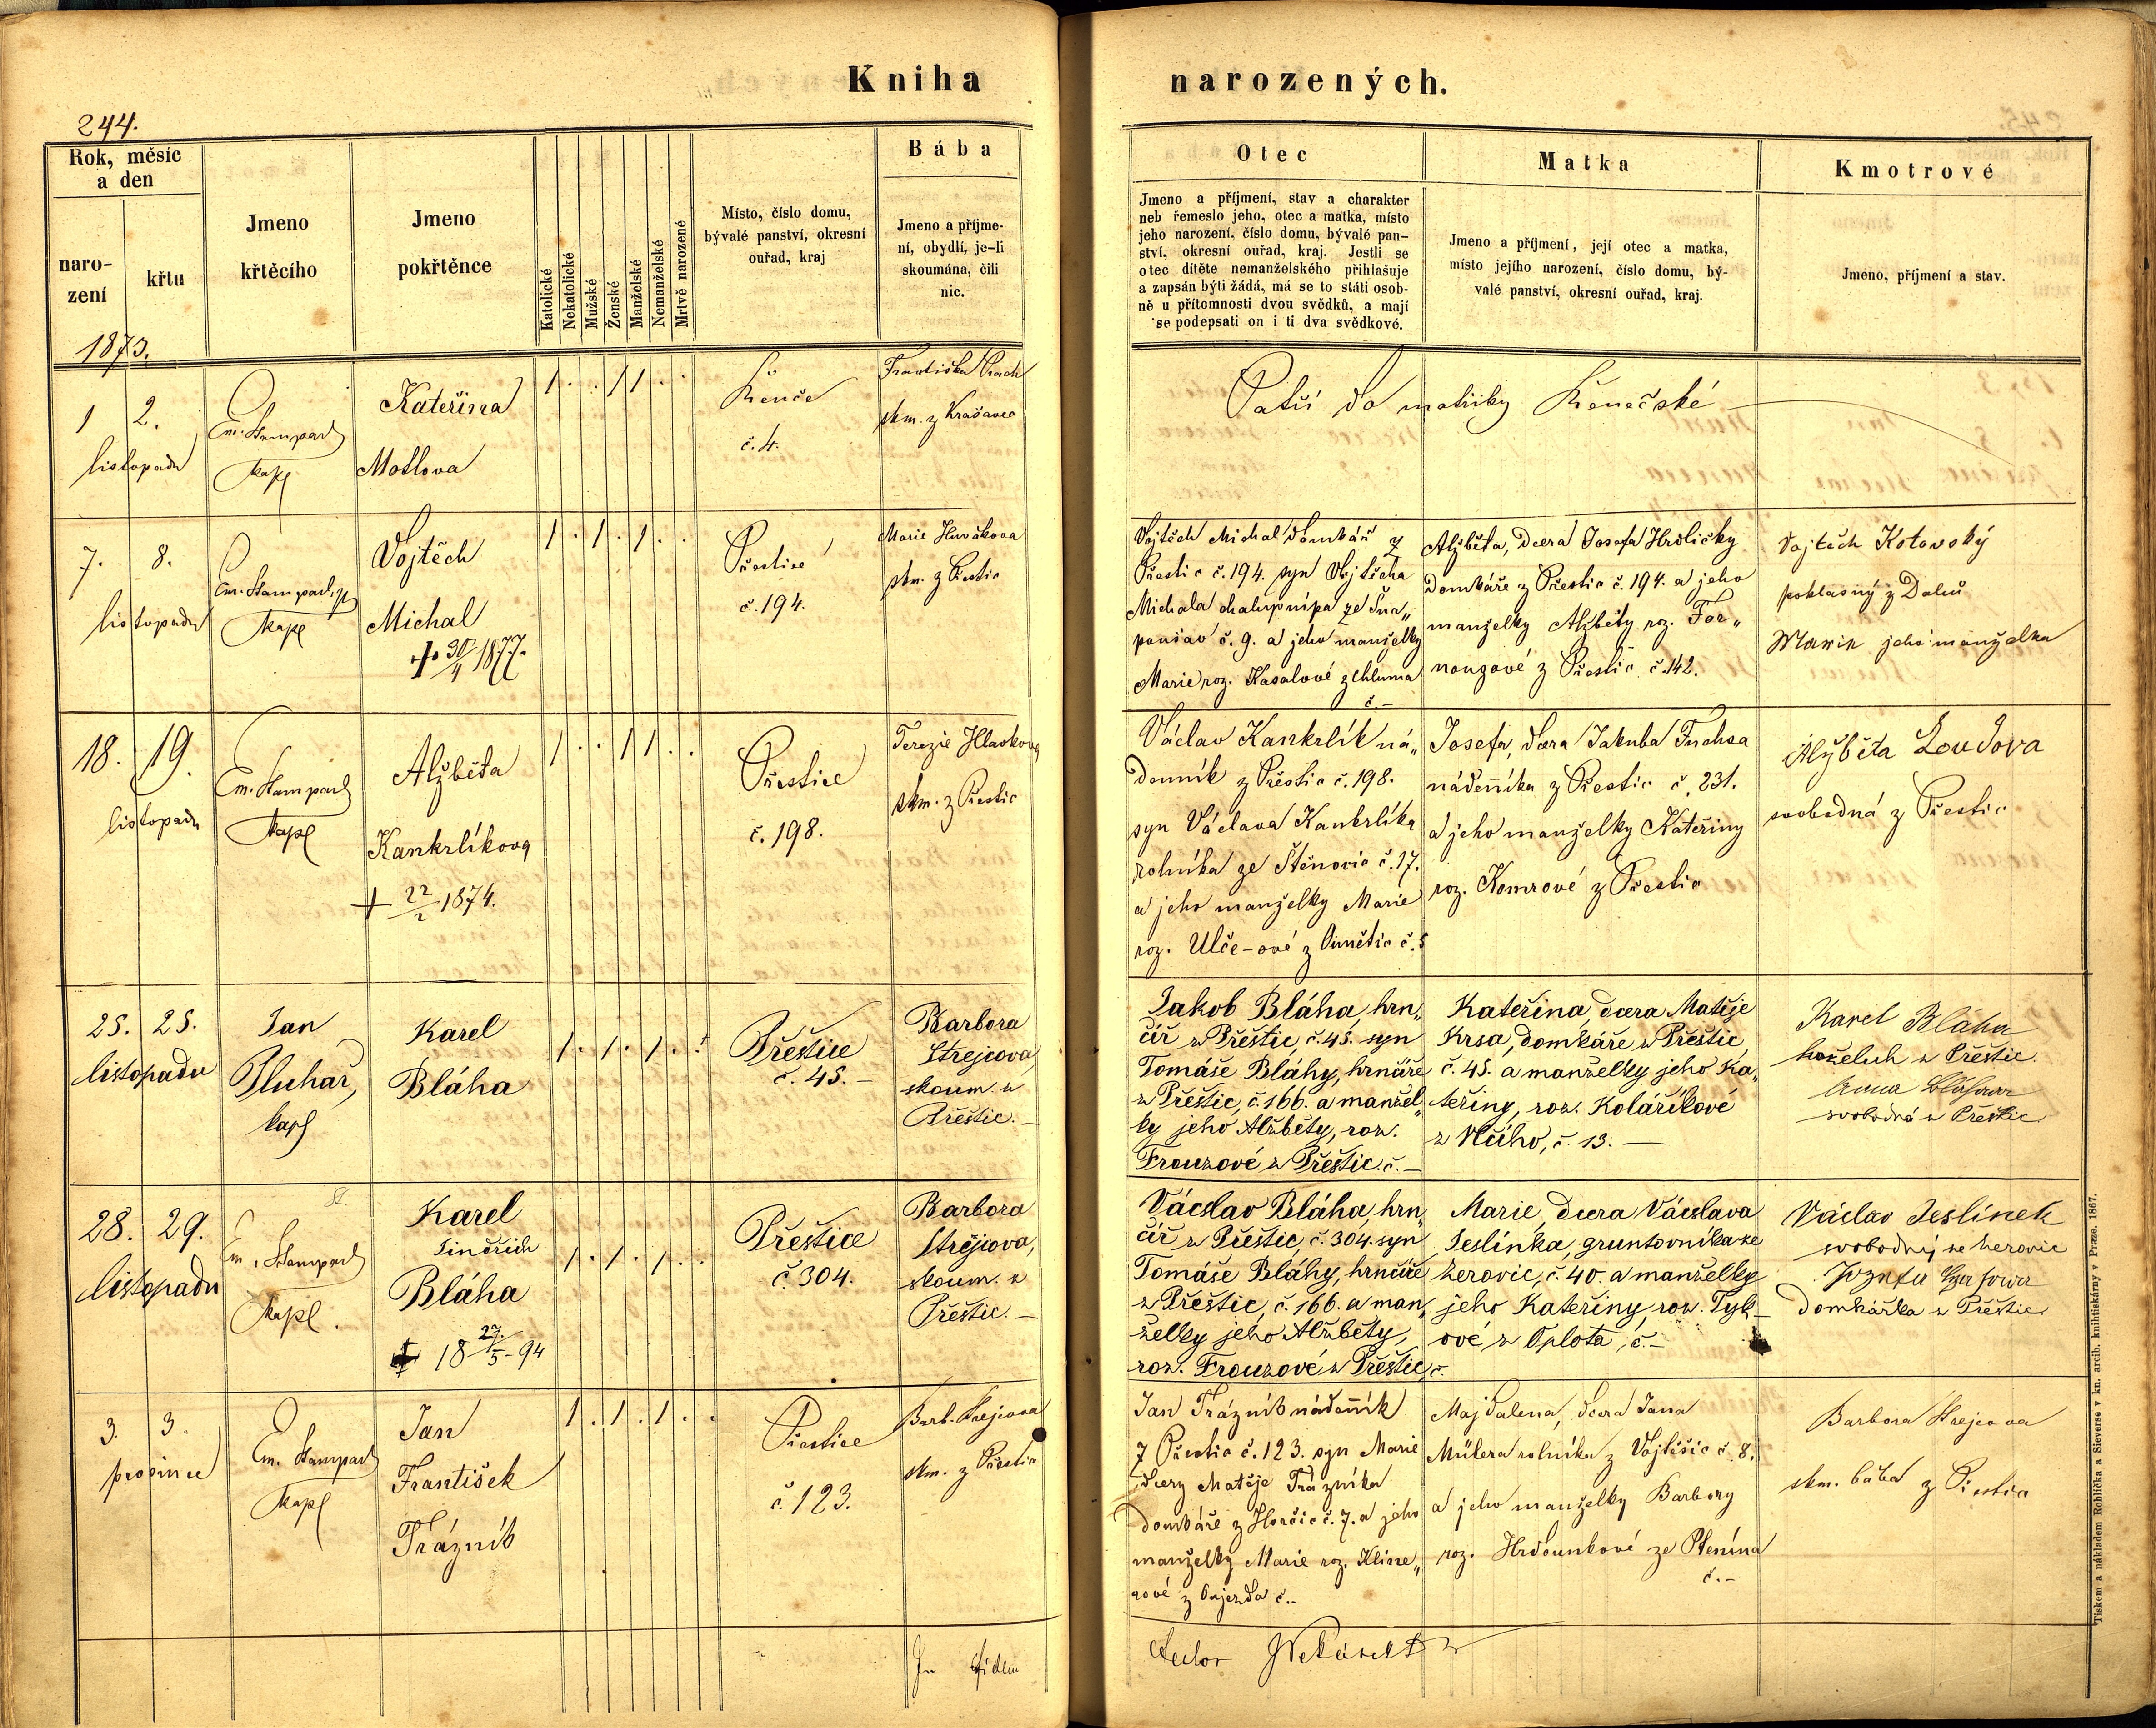 Kniha narozených.
244.
Rok, měsíc a den
narození
křtu
Jmeno křtěcího
Jmeno pokřtěnce
Katolické
Nekatolické
Mužské
Ženské
Manželské
Nemanželské
Mrtvě narozené
Místo, číslo domu,
bývalé panství, okresní
ouřad, kraj
Bába
Jmeno a příjme-
ní, obydlí, je-li
skoumána, čili
nic.
Otec
Jmeno a příjmení, stav a charakter
neb řemeslo jeho, otec a matka, místo
jeho narození, číslo domu, bývalé pan-
ství, okresní ouřad, kraj. Jestli se
otec dítěte nemanželského přihlašuje
a zapsán býti žádá, má se to státi osob-
ně u přítomnosti dvou svědků, a mají
se podepsati on i ti dva svědkové.
Matka
Jmeno a příjmení, její otec a matka,
místo jejího narození, číslo domu, bý-
valé panství, okresní ouřad, kraj.
Kmotrové
Jmeno, příjmení a stav.
1873.
1 2.
listopadu
Em. Stampach
kapl
Kateřina
Motlova
Řenče
č. 4.
Františka
skm. z
Patří do matriky Řenečské
7. 8.
listopadu
Em. Stampach
kapl
Vojtěch
Michal
30/4 1877.
Přestice
č. 194.
Marie
skm. z Přestic
Vojtěch Michal domkář z
Přestic č. 194. syn Vojtěcha
Michala chalupníka ze
č. 9. a jeho manželky
Marie roz. Kasalové z Chluma
č. –
Alžběta, dcera Josefa Hrdličky
domkáře z Přestic č. 194. a jeho
manželky Alžběty roz. For„
nouzové z Přestic č. 142.
Vojtěch Kotovský
poklasný z Dolců
Marie jeho manželka
18. 19.
listopadu
Em. Stampach
kapl
Alžběta
Kankrlíkova
+ 22/2 1874.
Přestice
č. 198.
Terezie Hlavkova
skm. z Přestic
Václav Kankrlík ná„
denník z Přestic č. 198.
syn Václava Kankrlíka
rolníka ze Štěnovic č. 17.
a jeho manželky Marie
roz. Ulče-ové z č. 5
Josefa, dcera Jakuba Fuchsa
nádenníka z Přestic č. 231.
a jeho manželky Kateřiny
roz. Komrové z Přestic
Alžběta Loudova
svobodná z Přestic
25. 25.
listopadu
Jan
Pluhař,
kapl
Karel
Bláha
Přeštice
č. 45. –
Barbora
Strejcova,
skoum. z
Přeštic. –
Jakob Bláha, hrn„
číř z Přeštic, č. 45. syn
Tomáše Bláhy, hrnčíře
z Přeštic, č. 166. a manžel„
ky jeho Alžběty, roz.
Frouzové z Přeštic. č. –
Kateřina, dcera Matěje
Krsa, domkáře z Přeštic
č. 45. a manželky jeho Ka„
teřiny, roz. Kolaříkové
z Vlčího, č. 13. –
Karel Bláha
koželuh z Přeštic.
Anna Bláhova
svobodná z Přeštic
28. 29.
listopadu
Em. Stampach
kapl.
Karel
Jindřich
Bláha
18 27/5 – 94
Přeštice
č. 304.
Barbora
Strejcova,
skoum. z
Přeštic. –
Václav Bláha, hrn„
číř z Přeštic, č. 304. syn
Tomáše Bláhy, hrnčíře
z Přeštic, č. 166. a man„
želky jeho Alžběty,
roz. Frouzové z Přeštic, č.
Marie, dcera Václava
Jeslínka, gruntovníka ze
Žerovic, č. 40. a manželky
jeho Kateřiny, roz. Tyl-
ové z Oplota, č. –
Václav Jeslínek
svobodný ze Žerovic
Jozefa
domkářka z Přeštic
3. 3.
prosince
Em. Stampach
kapl
Jan
František
Trázník
Přestice
č. 123.
Barb. Strejcova
skm. z Přestic
Jan Trázník nádenník
z Přestic č. 123. syn Marie
dcery Matěje Trázníka
domkáře z Horčic č. 7. a jeho
manželky Marie roz. Kline„
rové z Oujezda č. –
Majdalena, dcera Jana
Müllera rolníka z Vojtěšic č. 8.
a jeho manželky Barbory
roz. Hrdounkové ze Ptenína
č. –
Barbora Strejcova
skm. bába z Přestic
In fidem
Tiskem a nákladem Rohlíčka a Sieverse v kn. arcib. knihtiskárny v Praze. 1867.